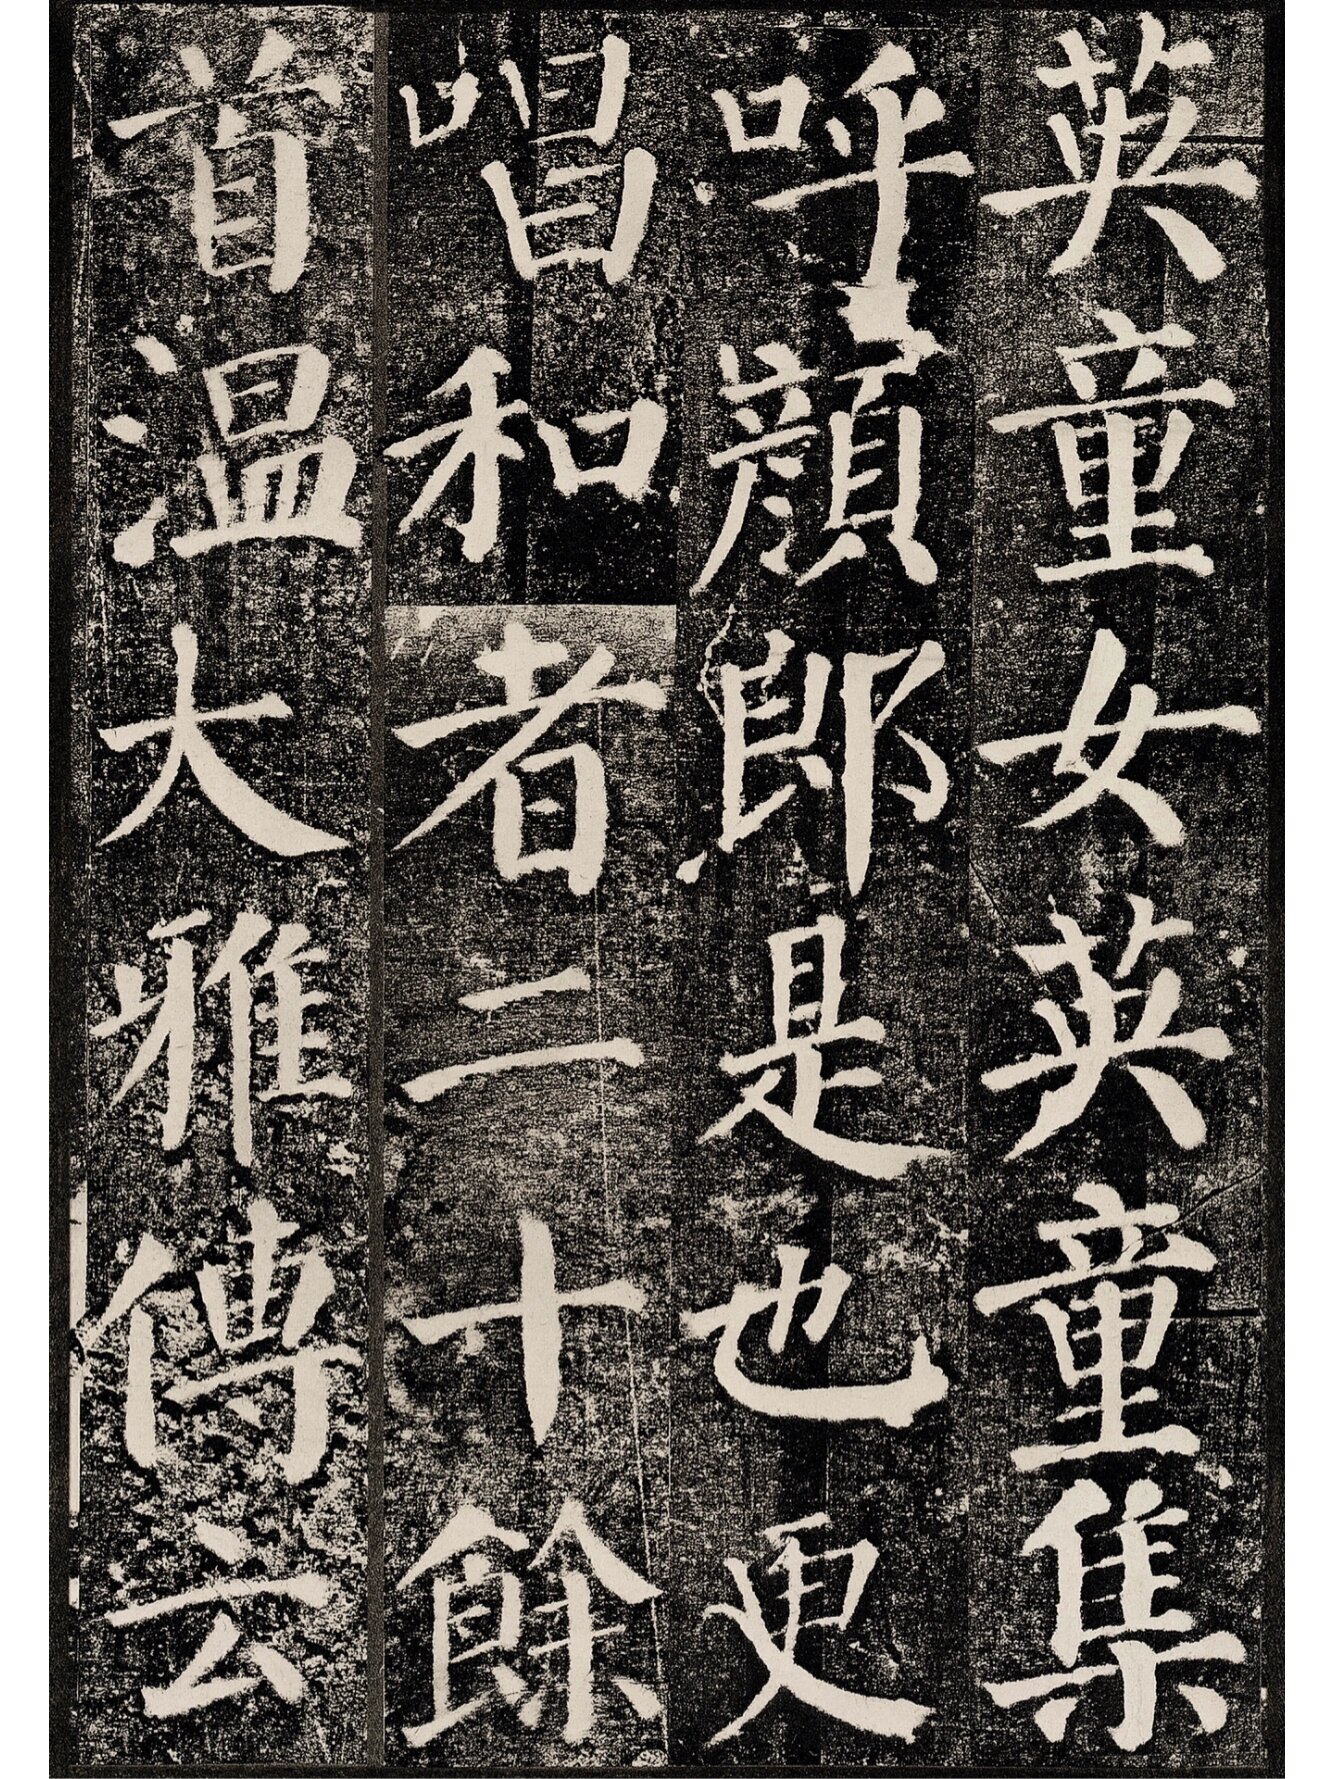 英童女英童集
呼顔郎是也更
唱和者二十餘
首溫大雅傳云